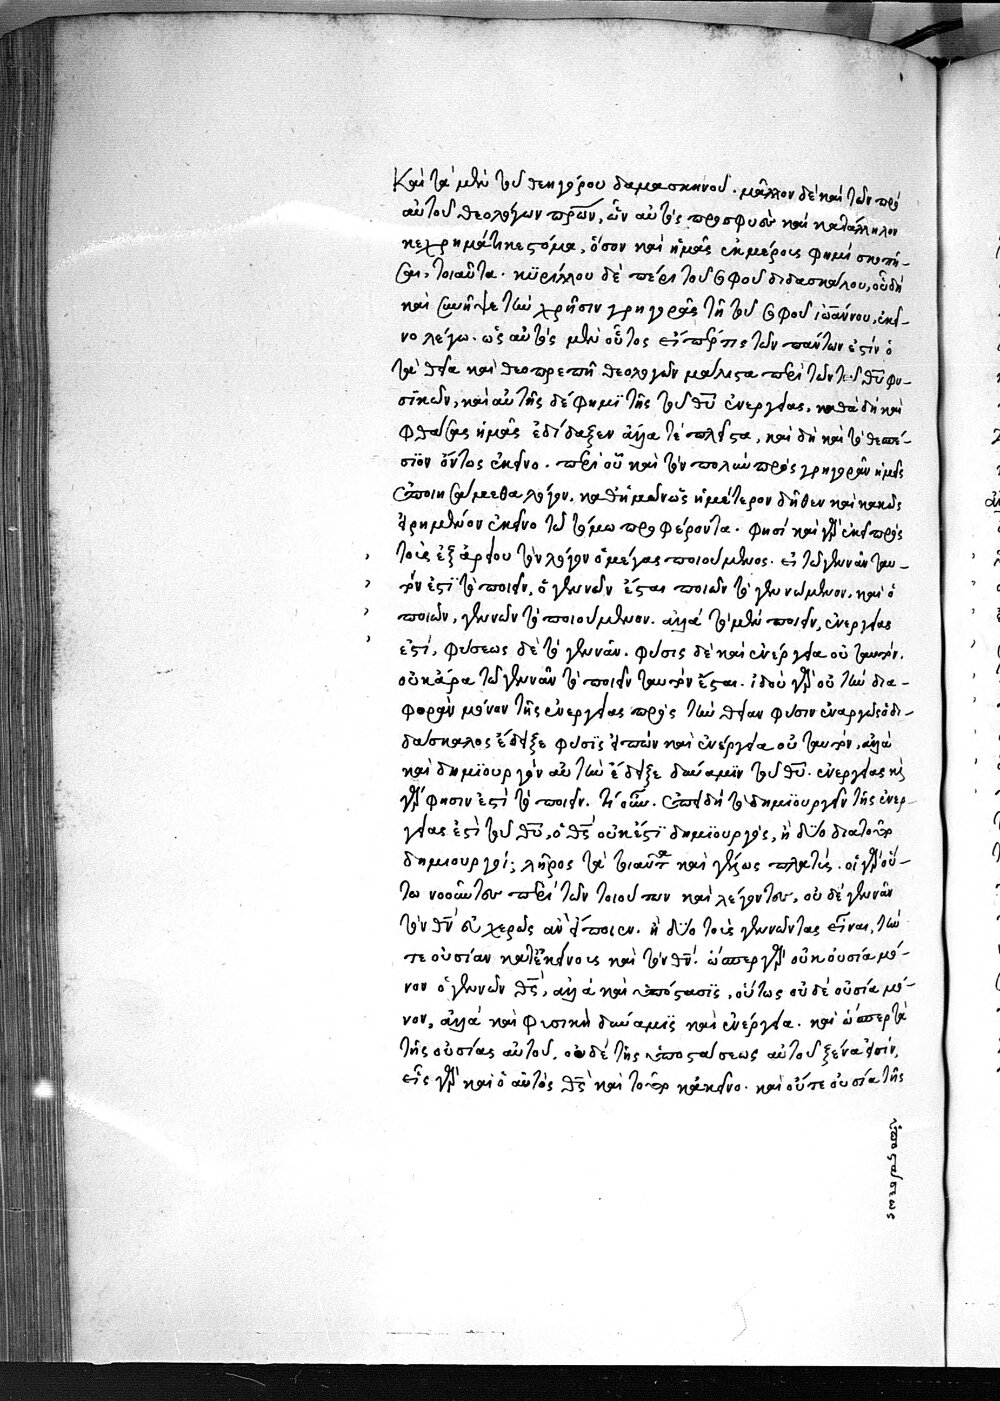 Καὶ τὰ μὲν τοῦ θεηγόρου δαμασκηνοῦ. μᾶλλον δὲ καὶ τῶν πρὸ
αὐτοῦ θεολόγων πρων, ὧν αὐτὸς προσφυὲς καὶ κατάλληλον
κεχρημάτικε στόμα, ὅσον καὶ ἡμᾶς ἐκ μέρους φημὶ
τοιαῦτα. κυρίλλου δὲ πέρι τοῦ σοφοῦ διδασκάλου, οὗ δὴ
καὶ τὴν χρῆσιν γρηγορᾶς τῇ τοῦ σοφοῦ ἰωάννου, ἐκεῖ-
νο λέγω. ὡς αὐτὸς μὲν οὗτος εἴπερ τις τῶν πάντων ἐστὶν ὁ
τὰ θεῖα καὶ θεοπρεπῆ θεολογῶν μάλιστα περὶ τῶν τοῦ θυ φυ-
σικῶν, καὶ αὐτῆς δέ φημι τῆς τοῦ θυ ἐνεργείας, καθὰ δὴ καὶ
φθάσας ἡμᾶς ἐδίδαξεν ἄλλα τὲ πλεῖστα, καὶ δὴ καὶ τὸ θεσπέ-
σιον ὄντως ἐκεῖνο. περὶ οὗ καὶ τὸν πολὺν πρὸς γρηγορᾶν ἡμεῖς
ἐποιησάμεθα λόγον, καθημῶν ὡς ἡμέτερον δῆθεν καὶ κακῶς
εἰρημένον ἐκεῖνο τῷ τόμῳ προφέροντα. φησὶ καὶ γὰρ ἐκεῖ πρὸς
τοὺς ἐξ ἀρείου τὸν λόγον ὁ μέγας ποιούμενος. εἰ τῷ γεννᾶν ταυ-
τόν ἐστι τὸ ποιεῖν, ὁ γεννῶν ἔσται ποιῶν τὸ γεννώμενον, καὶ ὁ
ποιῶν, γεννῶν τὸ ποιούμενον. ἀλλὰ τὸ μὲν ποιεῖν, ἐνεργείας
ἐστί, φύσεως δὲ τὸ γεννᾶν. φύσις δὲ καὶ ἐνέργεια οὐ ταυτόν.
οὐκ ἄρα τῷ γεννᾶν τὸ ποιεῖν ταυτὸν ἔσται. ἰδοὺ γὰρ οὐ τὴν δια-
φορὰν μόνον τῆς ἐνεργείας πρὸς τὴν θείαν φύσιν ἐναργῶς ὁ δι-
δάσκαλος ἔδειξε φύσις εἰπὼν καὶ ἐνέργεια οὐ ταυτόν, ἀλλὰ
καὶ δημιουργὸν αὐτὴν ἔδειξε δύναμιν τοῦ θυ. ἐνεργείας
γάρ φησιν ἐστὶ τὸ ποιεῖν. τί οὖν. ἐπειδὴ τὸ δημιουργεῖν τῆς ἐνερ-
γείας ἐστὶ τοῦ θυ, ὁ θς οὐκ ἔστι δημιουργός, ἢ δύο διατοῦτο
δημιουργοί; λῆρος τὰ τοιαῦτα καὶ γέλως πλατύς. οἱ γὰρ οὕ-
τω νοοῦντες περὶ τῶν τοιούτων καὶ λέγοντες, οὐδὲ γεννᾶν
τὸν θν εὐχερῶς ἂν εἴποιεν. ἢ δύο τοὺς γεννῶντας εἶναι, τήν
τε οὐσίαν κατ᾽ ἐκείνους καὶ τὸν θν. ὥσπερ γὰρ οὐκ οὐσία μό-
νον ὁ γεννῶν θς, ἀλλὰ καὶ ὑπόστασις, οὕτως οὐδὲ οὐσία μό-
νον, ἀλλὰ καὶ φυσικὴ δύναμις καὶ ἐνέργεια. καὶ ὥσπερ τὰ
τῆς οὐσίας αὐτοῦ, οὐδὲ τῆς ὑποστάσεως αὐτοῦ ξένα εἰσίν,
εἷς γὰρ καὶ ὁ αὐτὸς θς καὶ τοῦτο κἀκεῖνο. καὶ οὔτε οὐσία τῆς
ὑποστάσεως